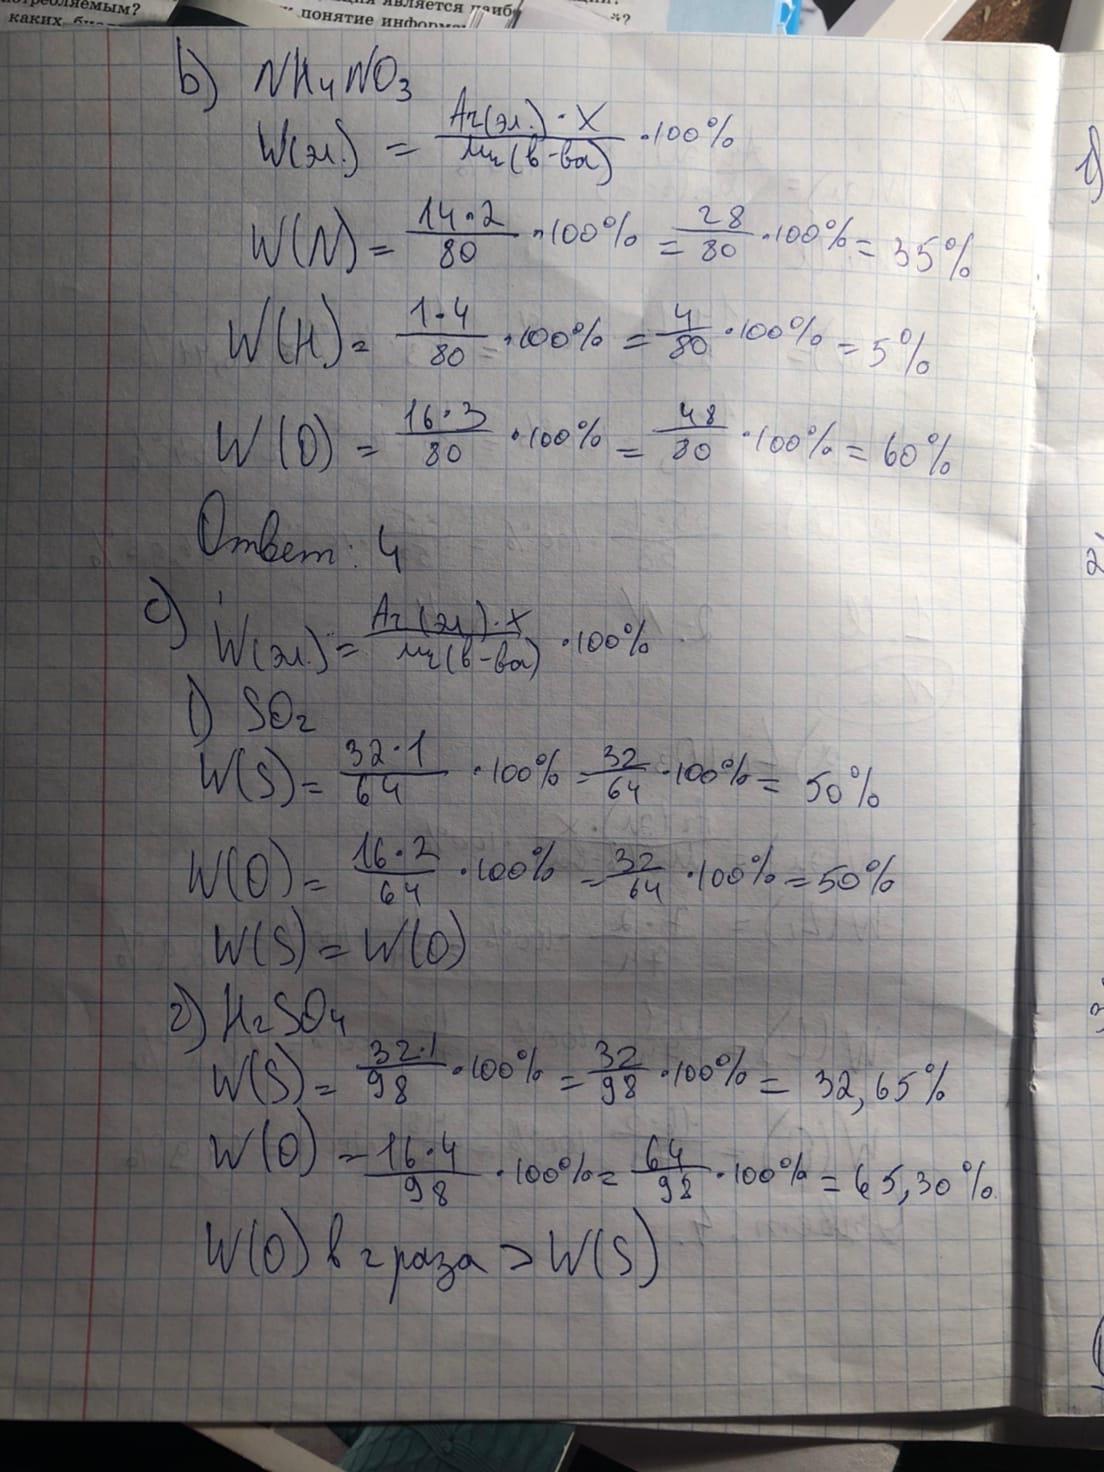 потребляемым?
каких
является наиб
понятие информ
b) NH4NO3
W(эл.) = Ar(эл.)·X / Mr(в-ва) ·100%
W(N) = 14·2 / 80 ·100% = 28 / 80 ·100% = 35%
W(H) = 1·4 / 80 ·100% = 4 / 80 ·100% = 5%
W(O) = 16·3 / 80 ·100% = 48 / 80 ·100% = 60%
Ответ: 4
c) W(эл.) = Ar(эл.)·X / Mr(в-ва) ·100%
1) SO2
W(S) = 32·1 / 64 ·100% = 32 / 64 ·100% = 50%
W(O) = 16·2 / 64 ·100% = 32 / 64 ·100% = 50%
W(S) = W(O)
2) H2SO4
W(S) = 32·1 / 98 ·100% = 32 / 98 ·100% = 32,65%
W(O) = 16·4 / 98 ·100% = 64 / 98 ·100% = 65,30%
W(O) в 2 раза > W(S)